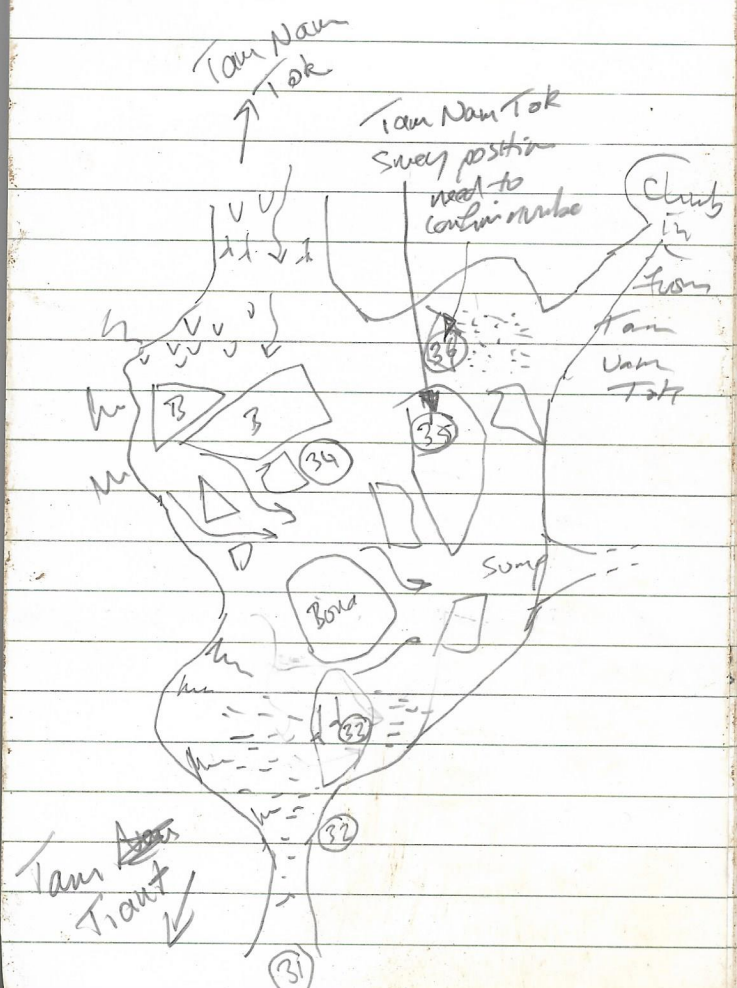 Tam Nam
Tok
Tam Nam Tok
Survey position
need to
confirm number
Climb
in
from
Tam
Nam
Tok
36
B
B
35
34
Sump
33
32
Tam
Tiant
31